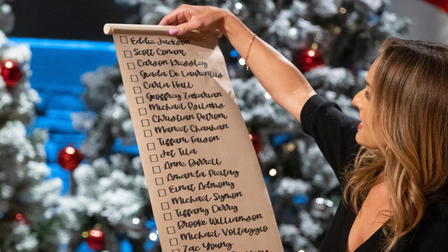 Eddie Jackson
Scott Conant
Carson Kressley
Giada De Laurentiis
Carla Hall
Geoffrey Zakarian
Michael Poiarko
Christian Petroni
Maneet Chauhan
Tiffani Faison
Jet Tila
Anne Burrell
Amanda Freitag
Einat Admony
Michael Symon
Tiffany Derry
Brooke Williamson
Michael Voltaggio
Zac Young